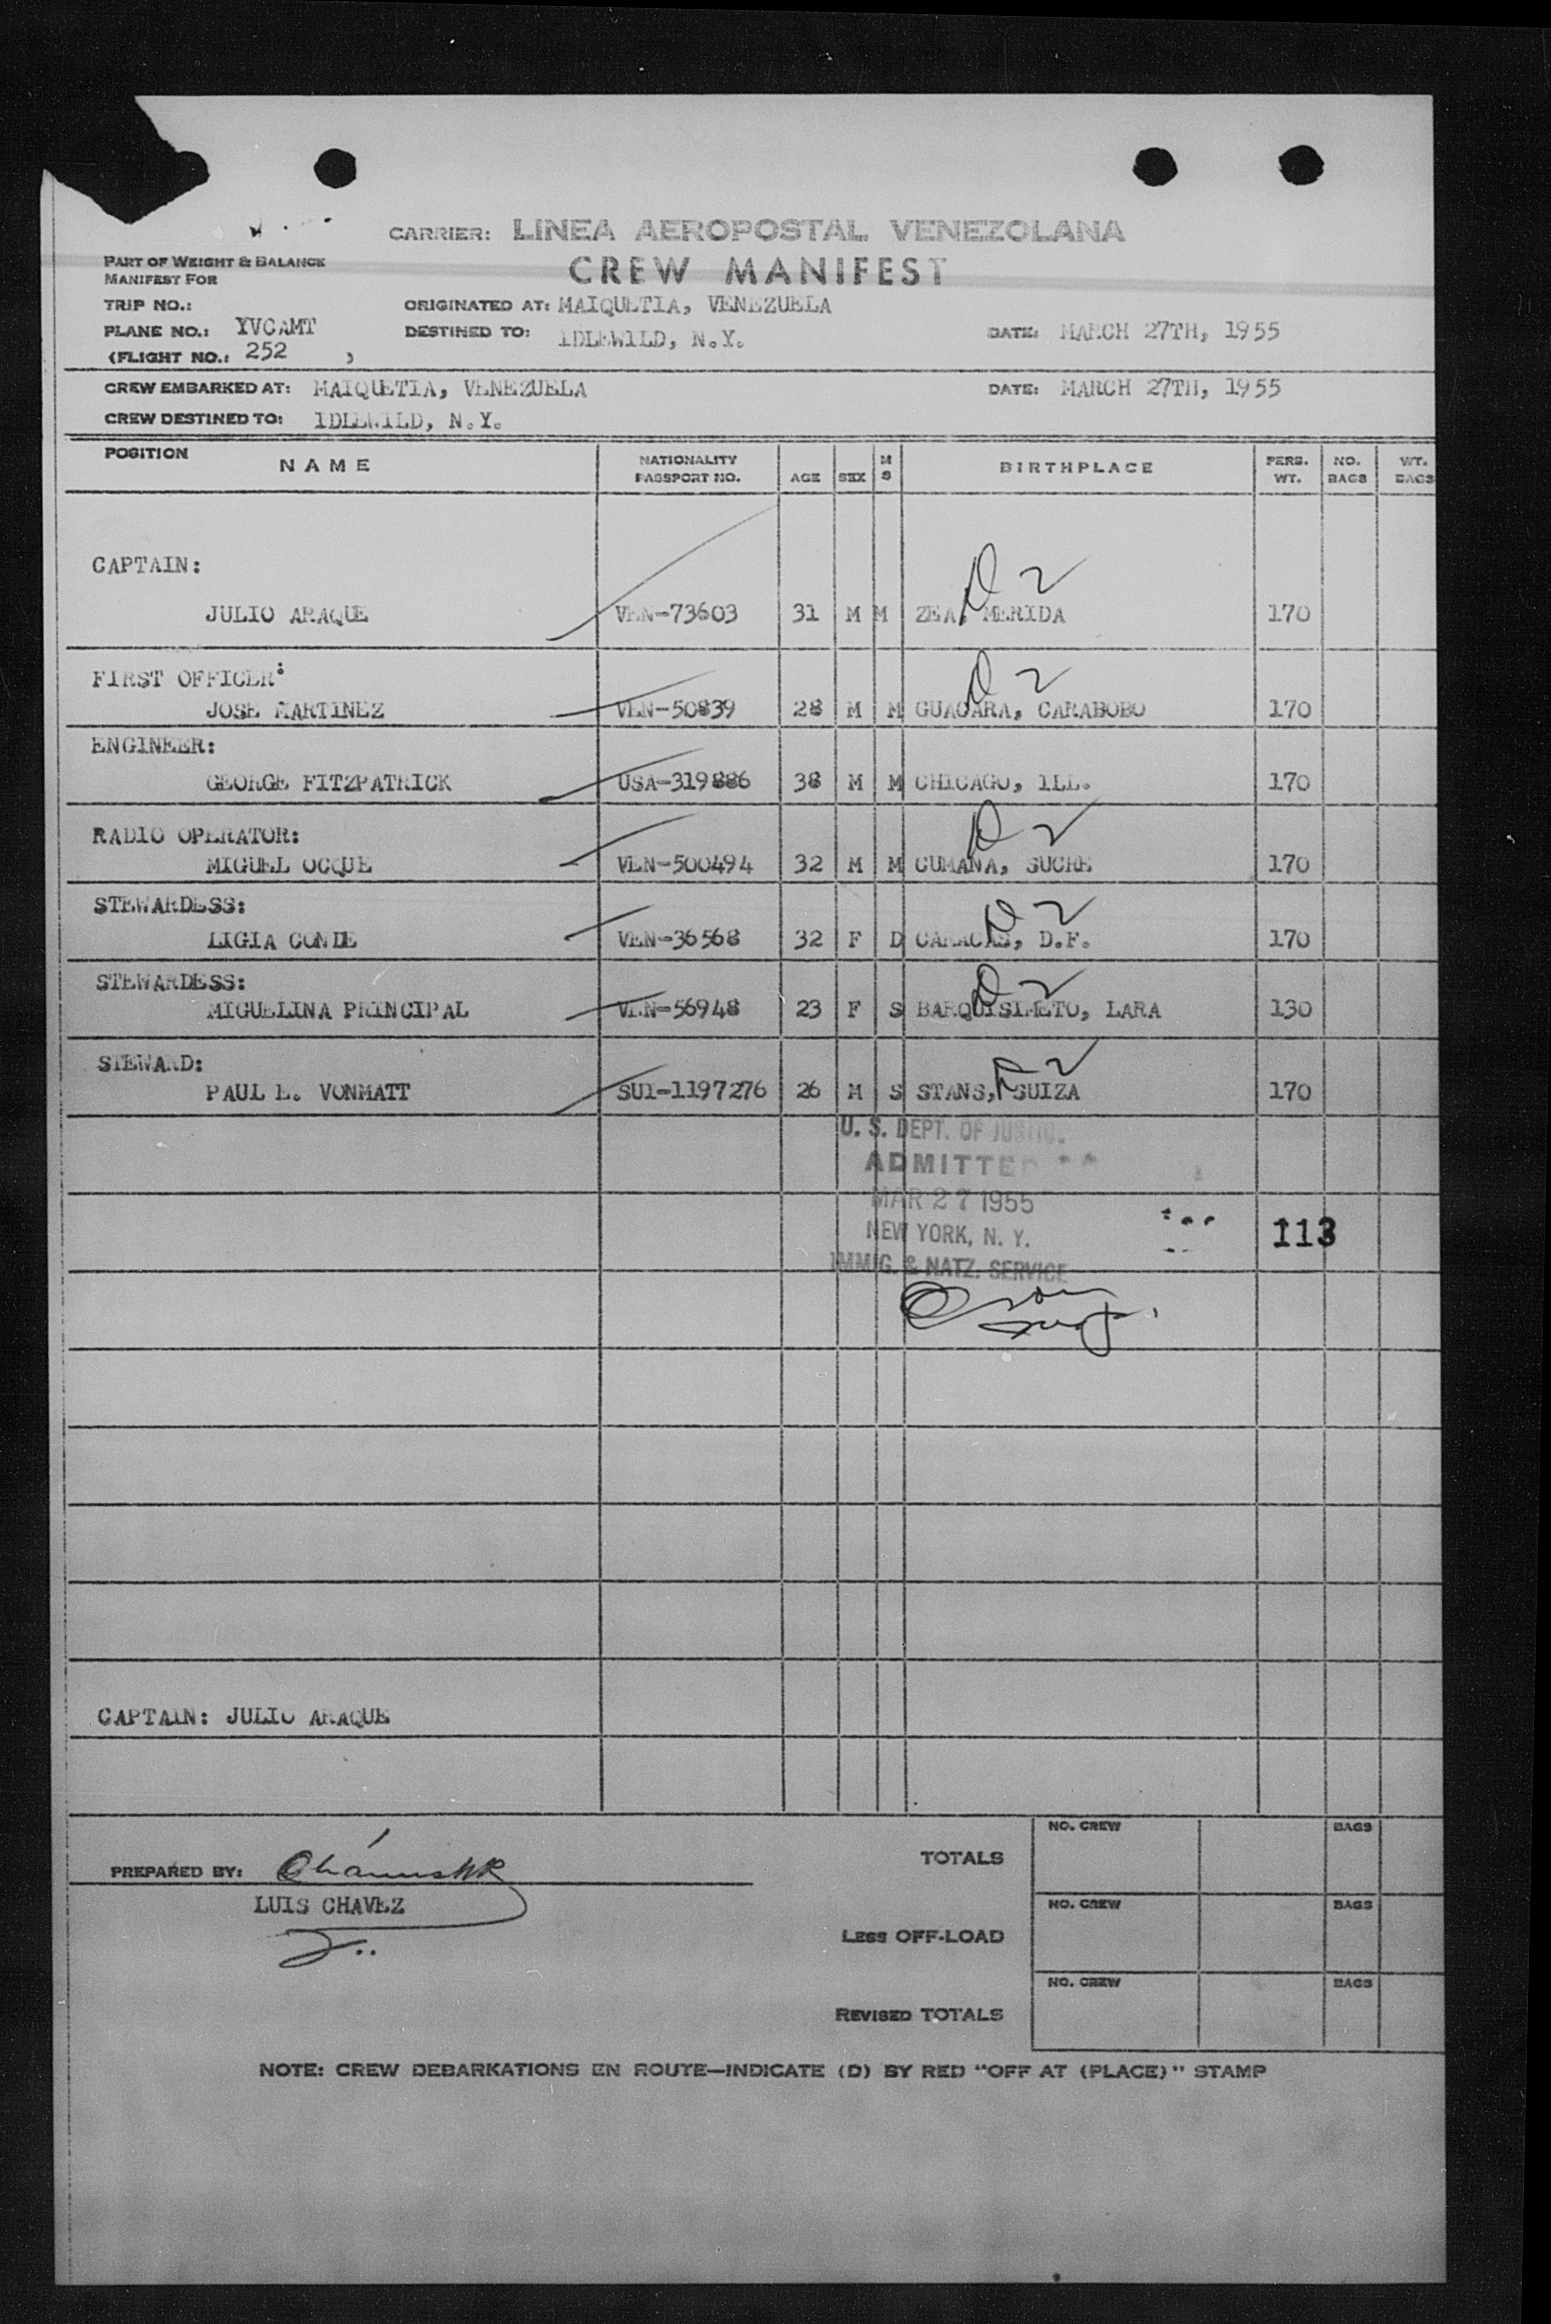 CARRIER: LINEA AEROPOSTAL VENEZOLANA
CREW MANIFEST
PART OF WEIGHT & BALANCE
MANIFEST FOR
TRIP NO.: ORIGINATED AT: MAIQUETIA, VENEZUELA
PLANE NO.: YVCAMT DESTINED TO: IDLEWILD, N.Y. DATE: MARCH 27TH, 1955
(FLIGHT NO.: 252 )
CREW EMBARKED AT: MAIQUETIA, VENEZUELA DATE: MARCH 27TH, 1955
CREW DESTINED TO: IDLEWILD, N.Y.
POSITION NAME NATIONALITY PASSPORT NO. AGE SEX M S BIRTHPLACE PERS. WT. NO. BAGS WT. BAGS
CAPTAIN: D 2
JULIO ARAQUE VEN-73603 31 M M ZEA, MERIDA 170
FIRST OFFICER: D 2
JOSE MARTINEZ VEN-50839 28 M M GUACARA, CARABOBO 170
ENGINEER:
GEORGE FITZPATRICK USA-319886 38 M M CHICAGO, ILL. 170
RADIO OPERATOR: D 2
MIGUEL OCQUE VEN-500494 32 M M CUMANA, SUCRE 170
STEWARDESS: D 2
LIGIA CONDE VEN-36568 32 F D CARACAS, D.F. 170
STEWARDESS: D 2
MIGUELINA PRINCIPAL VEN-56948 23 F S BARQUISIMETO, LARA 130
STEWARD: D 2
PAUL E. VONMATT SUI-1197276 26 M S STANS, SUIZA 170
U. S. DEPT. OF JUSTICE
ADMITTED
MAR 27 1955
NEW YORK, N. Y. 113
IMMIG. & NATZ. SERVICE
CAPTAIN: JULIO ARAQUE
NO. CREW BAGS
PREPARED BY: TOTALS
LUIS CHAVEZ
NO. CREW BAGS
LESS OFF-LOAD
NO. CREW BAGS
REVISED TOTALS
NOTE: CREW DEBARKATIONS EN ROUTE—INDICATE (D) BY RED "OFF AT (PLACE)" STAMP